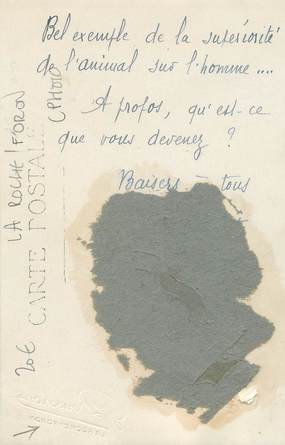 Bel exemple de la supériorité
de l'animal sur l'homme....
A propos, qu'est-ce
que vous devenez ?
Baisers à tous
LA ROCHE / FORON
CPHOTO
CARTE POSTALE
20€